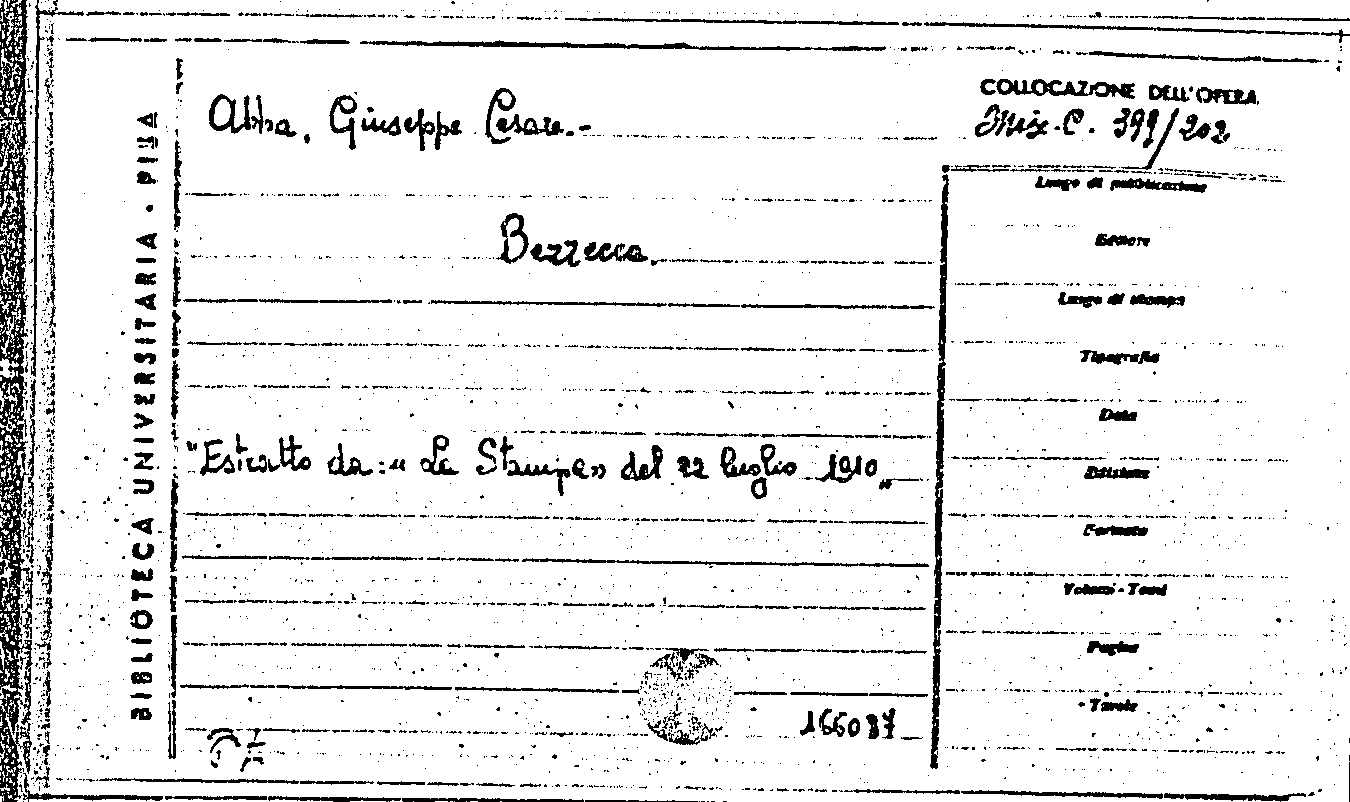 BIBLIOTECA UNIVERSITARIA - PISA
Abba, Giuseppe Cesare.-
COLLOCAZIONE DELL'OPERA
Mix. C. 399/202
Luogo di pubblicazione
Bezzecca.
Editore
Luogo di stampa
Tipografia
Data
"Estratto da: « La Stampa» del 22 luglio 1910„
Edizione
Formato
Volumi - Tomi
Pagine
Tavole
166087